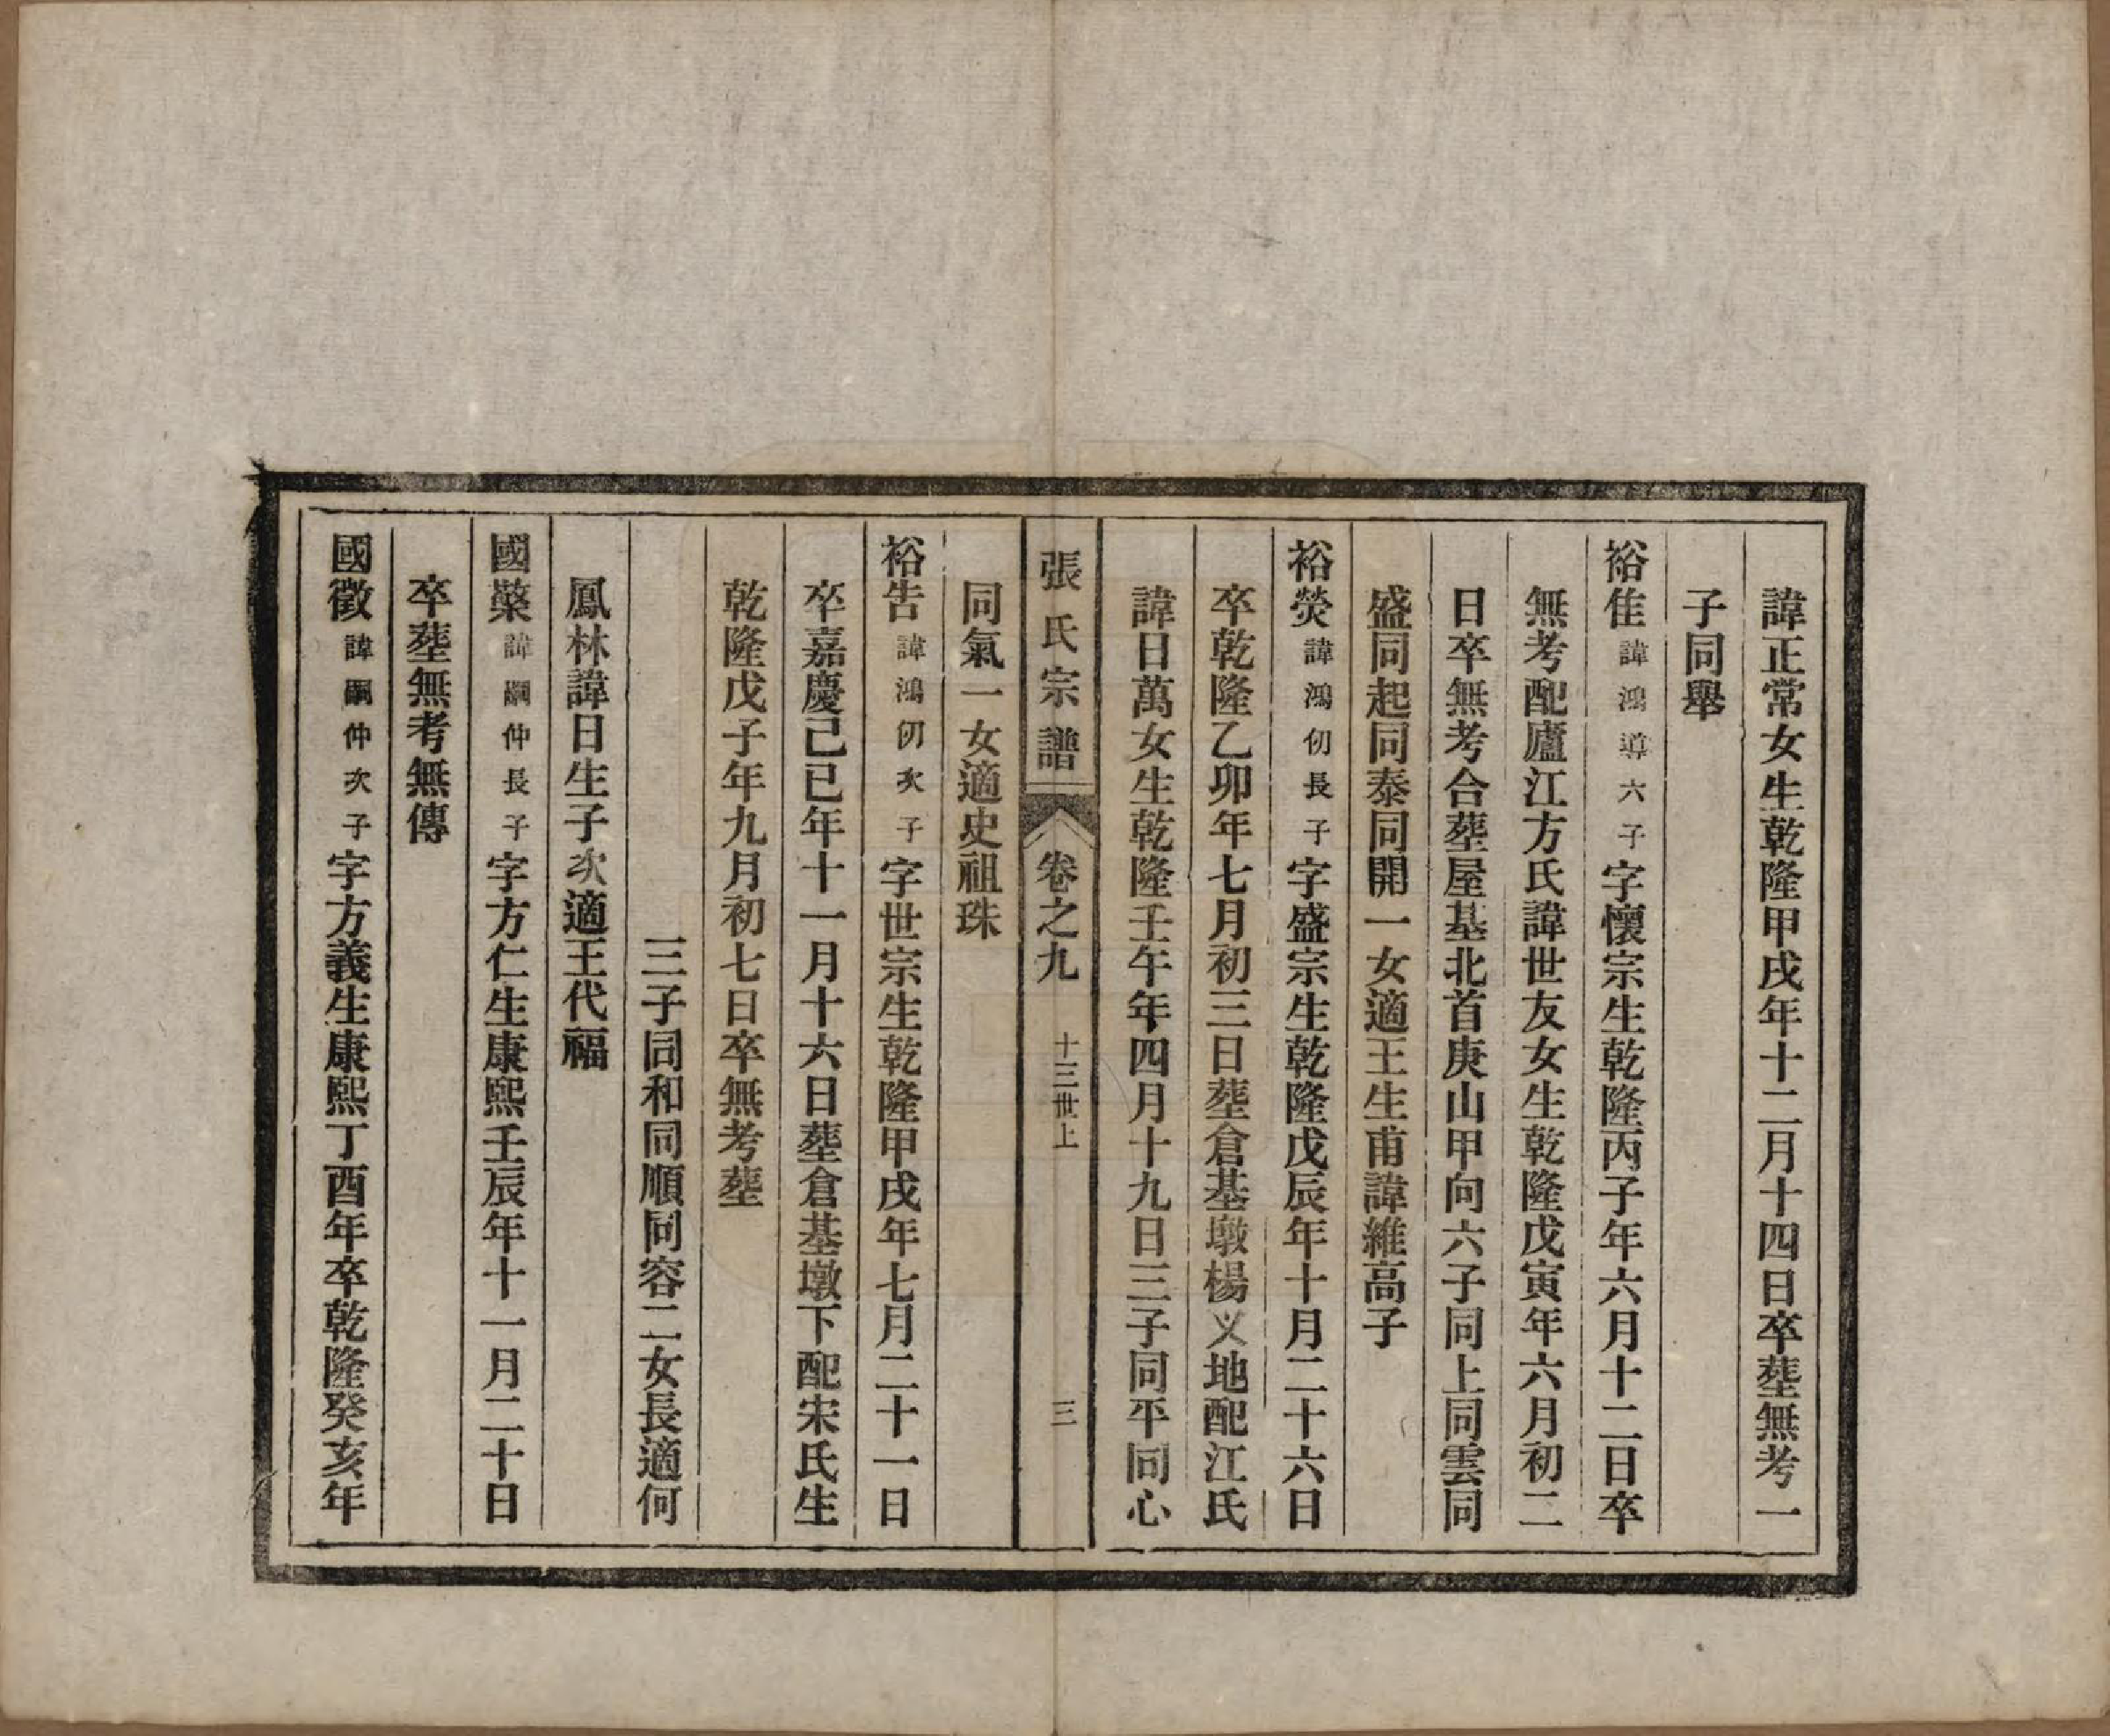 諱正常女生乾隆甲戌年十二月十四日卒塟無考一
子同舉
裕佳諱鴻導六子字懷宗生乾隆丙子年六月十二日卒
無考配廬江方氏諱世友女生乾隆戊寅年六月初二
日卒無考合塟屋基北首庚山甲向六子同上同雲同
盛同起同泰同開一女適王生甫諱維高子
裕熒諱鴻仞長子字盛宗生乾隆戊辰年十月二十六日
卒乾隆乙卯年七月初三日塟倉基墩楊义地配江氏
諱日萬女生乾隆壬午年四月十九日三子同平同心
同氣一女適史祖珠
張氏宗譜 卷之九 十三世上 三
裕告諱鴻仞次子字世宗生乾隆甲戌年七月二十一日
卒嘉慶己巳年十一月十六日塟倉基墩下配宋氏生
乾隆戊子年九月初七日卒無考塟
三子同和同順同容二女長適何
鳳林諱日生子次適王代福
國檠諱嗣仲長子字方仁生康熙壬辰年十一月二十日
卒塟無考無傳
國徵諱嗣仲次子字方義生康熙丁酉年卒乾隆癸亥年